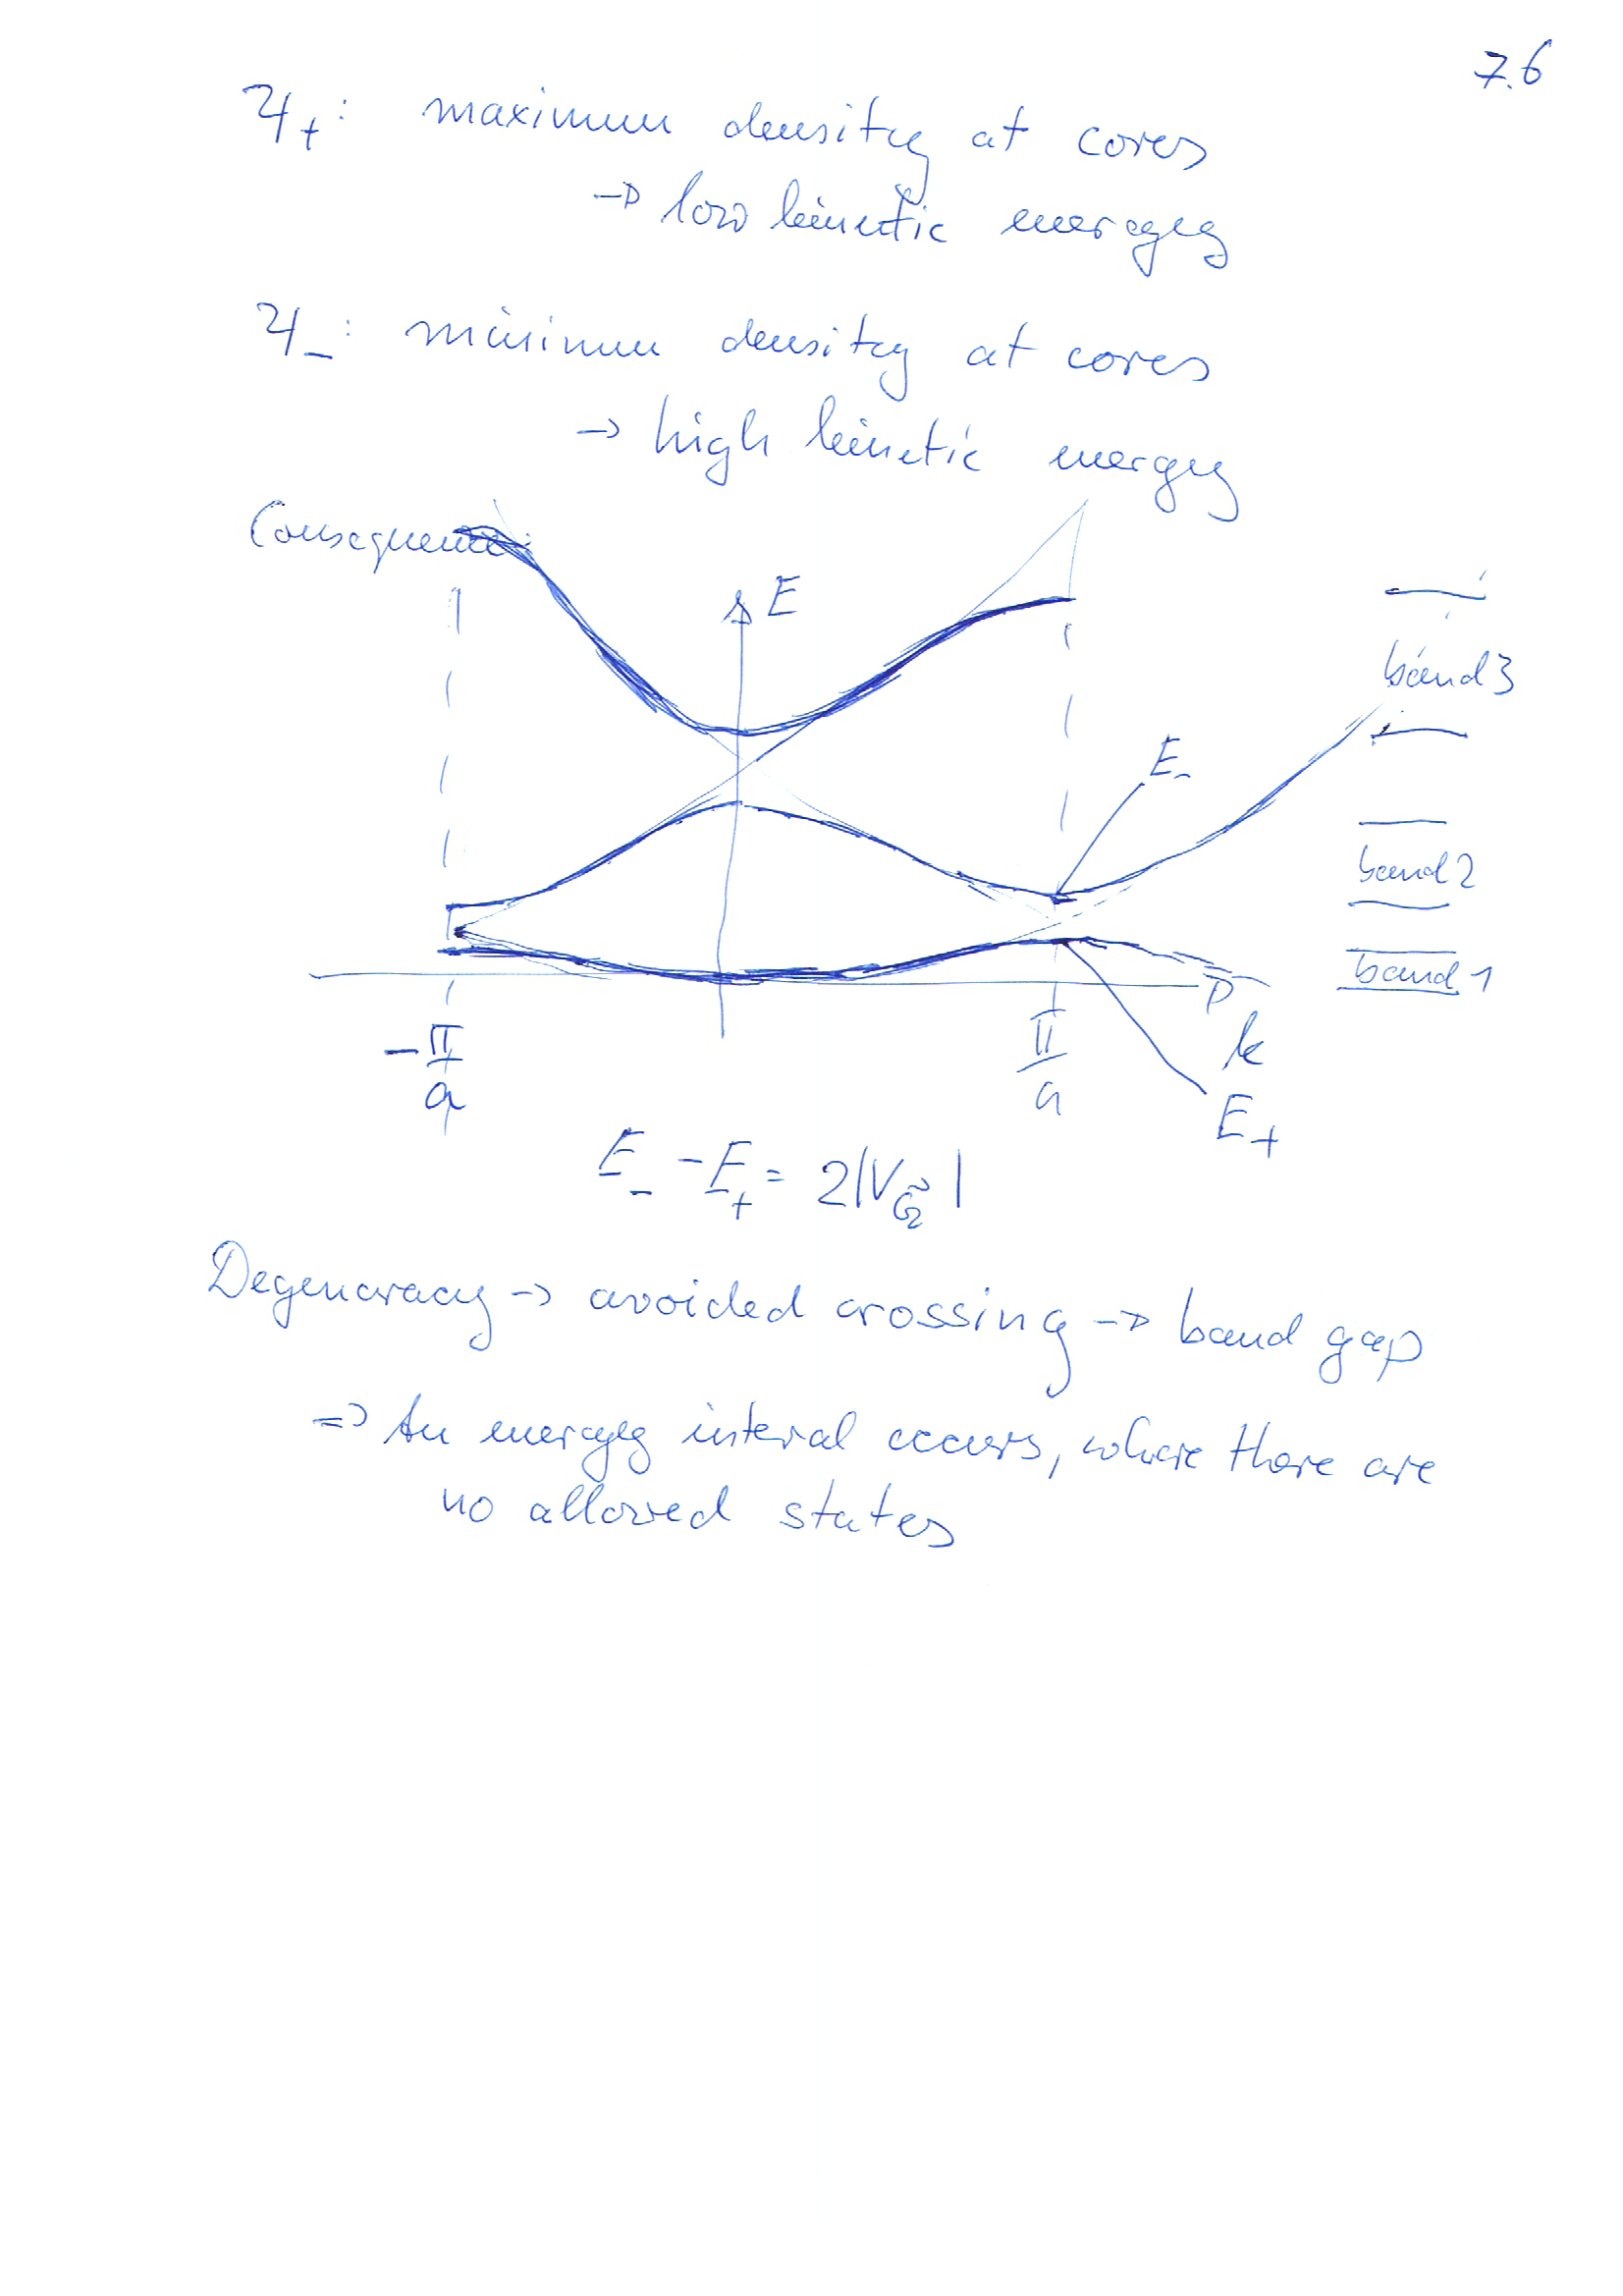 7.6
Ψ₊: maximum density at cores
→ low kinetic energy
Ψ₋: minimum density at cores
→ high kinetic energy
Consequence:
E
band 3
E₋
band 2
band 1
-π/a
π/a
k
E₊
E₋ - E₊ = 2|V_G̃|
Degeneracy → avoided crossing → band gap
⇒ An energy interal occurs, where there are
no allowed states